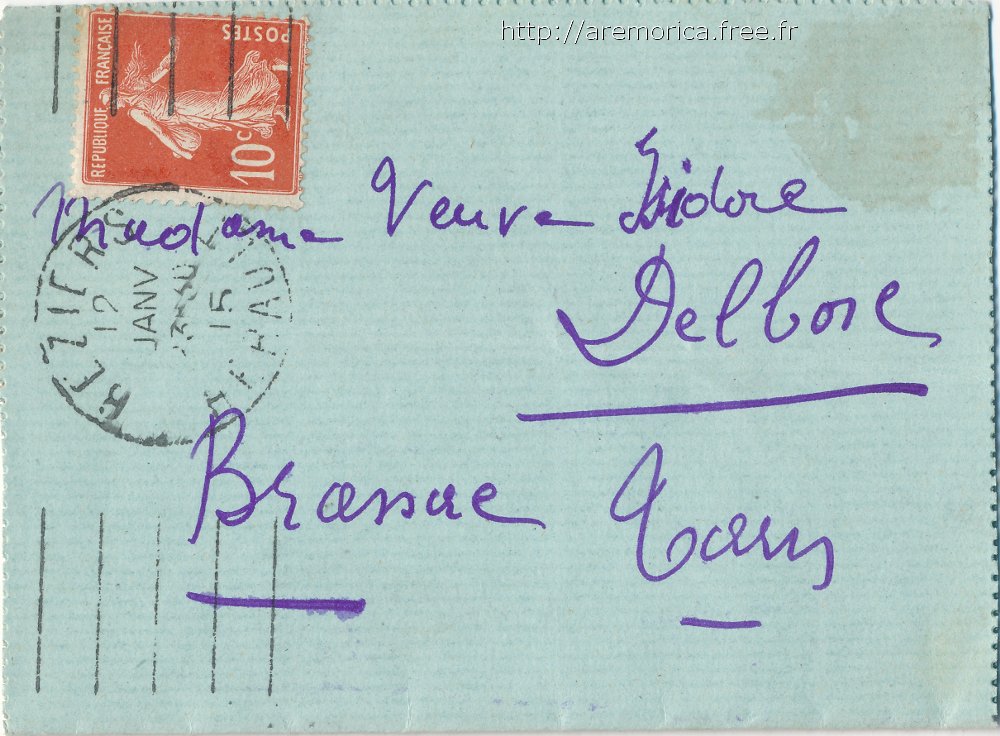 http://aremorica.free.fr
REPUBLIQUE FRANÇAISE
POSTES
10c
Madame Veuve Isidore
Delbosc
Brassac Tarn
BEZIERS
12
JANV
15
HERAULT